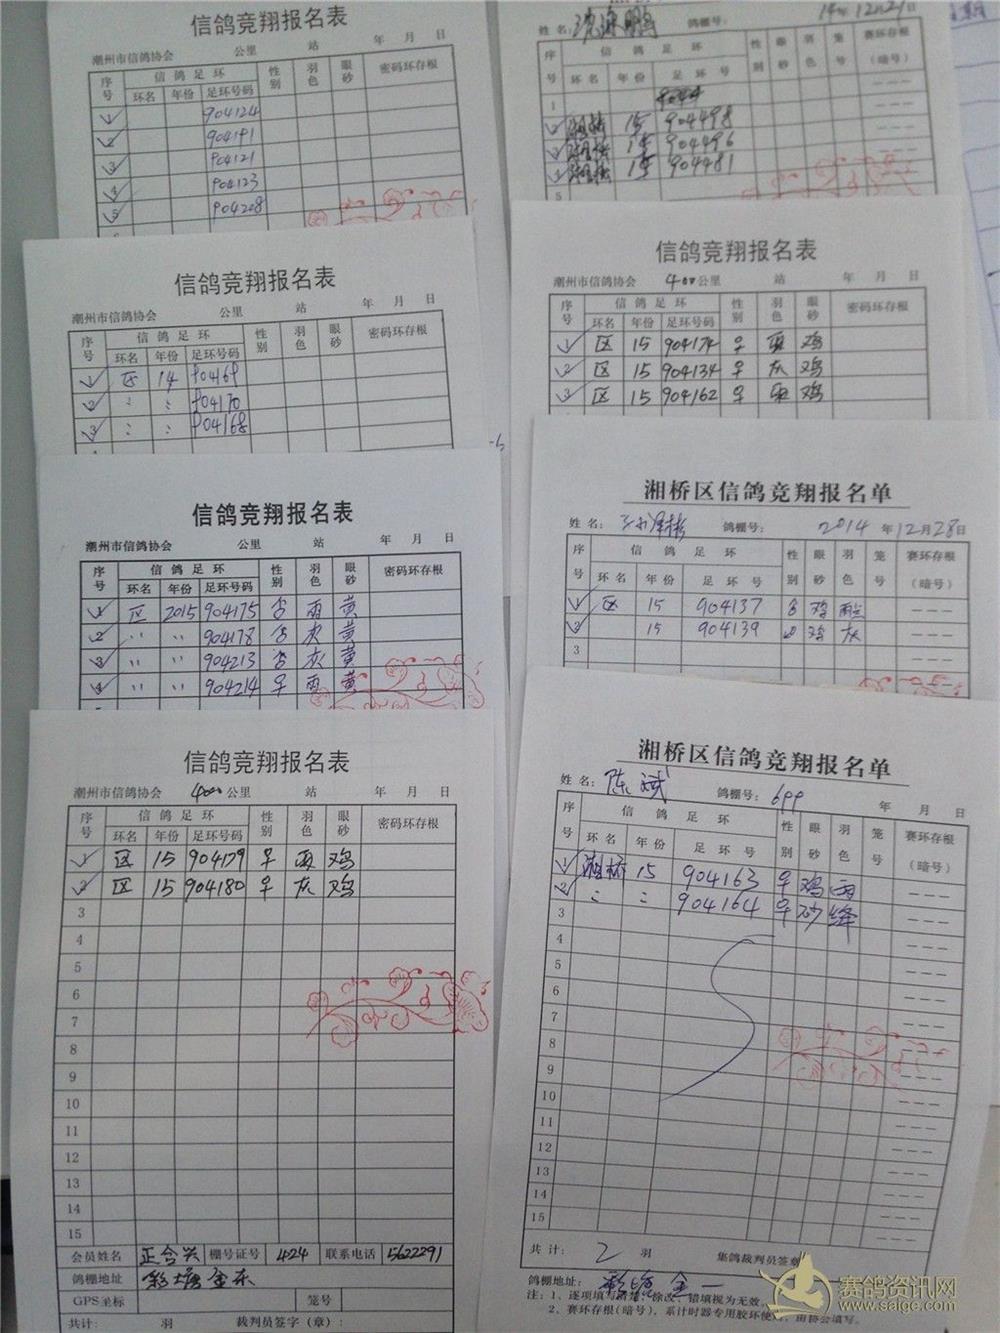 信鸽竞翔报名表
潮州市信鸽协会 公里 站 年 月 日
序号 信鸽足环 性别 羽色 眼砂 密码环存根
环名 年份 足环号码
1 904124
2 904191
3 904121
4 904123
5 904208
姓名: 鸽棚号: 14年12月21日
序号 信鸽足环 性别 眼砂 羽色 笼号 赛环存根(暗号)
环名 年份 足环号
1
2 湘桥 15 904498
3 湘桥 15 904496
4 湘桥 15 904481
5
信鸽竞翔报名表
潮州市信鸽协会 公里 站 年 月 日
序号 信鸽足环 性别 羽色 眼砂 密码环存根
环名 年份 足环号码
1 区 14 904169
2 〃 〃 904170
3 〃 〃 904168
信鸽竞翔报名表
潮州市信鸽协会 400公里 站 年 月 日
序号 信鸽足环 性别 羽色 眼砂 密码环存根
环名 年份 足环号码
1 区 15 904174 ♀ 雨 鸡
2 区 15 904134 ♀ 灰 鸡
3 区 15 904162 ♀ 鸡
信鸽竞翔报名表
潮州市信鸽协会 公里 站 年 月 日
序号 信鸽足环 性别 羽色 眼砂 密码环存根
环名 年份 足环号码
1 区 2015 904175 雨 黄
2 〃 〃 904178 灰 黄
3 〃 〃 904213 灰 黄
4 〃 〃 904214 ♀ 雨 黄
湘桥区信鸽竞翔报名单
姓名: 鸽棚号: 2014年12月28日
序号 信鸽足环 性别 眼砂 羽色 笼号 赛环存根(暗号)
环名 年份 足环号
1 区 15 904137 鸡 雨点
2 15 904139 鸡 灰
3
信鸽竞翔报名表
潮州市信鸽协会 400公里 站 年 月 日
序号 信鸽足环 性别 羽色 眼砂 密码环存根
环名 年份 足环号码
1 区 15 904179 ♀ 雨 鸡
2 区 15 904180 ♀ 灰 鸡
3
4
5
6
7
8
9
10
11
12
13
14
15
会员姓名 正合兴 棚号证号 424 联系电话 5622291
鸽棚地址 彩塘金东
GPS坐标 笼号
共计: 羽 裁判员签字(章):
湘桥区信鸽竞翔报名单
姓名: 陈斌 鸽棚号: 699 年 月 日
序号 信鸽足环 性别 眼砂 羽色 笼号 赛环存根(暗号)
环名 年份 足环号
1 湘桥 15 904163 ♀ 鸡 雨
2 〃 〃 904164 ♀ 砂 绛
3
4
5
6
7
8
9
10
11
12
13
14
15
共计: 2 羽 集鸽裁判员签章
鸽棚地址: 彩塘金一
注:1、逐项填写清楚、涂改、错填视为无效。
2、赛环存根(暗号),系计时器专用胶环使用,由协会填写。
赛鸽资讯网
www.saige.com